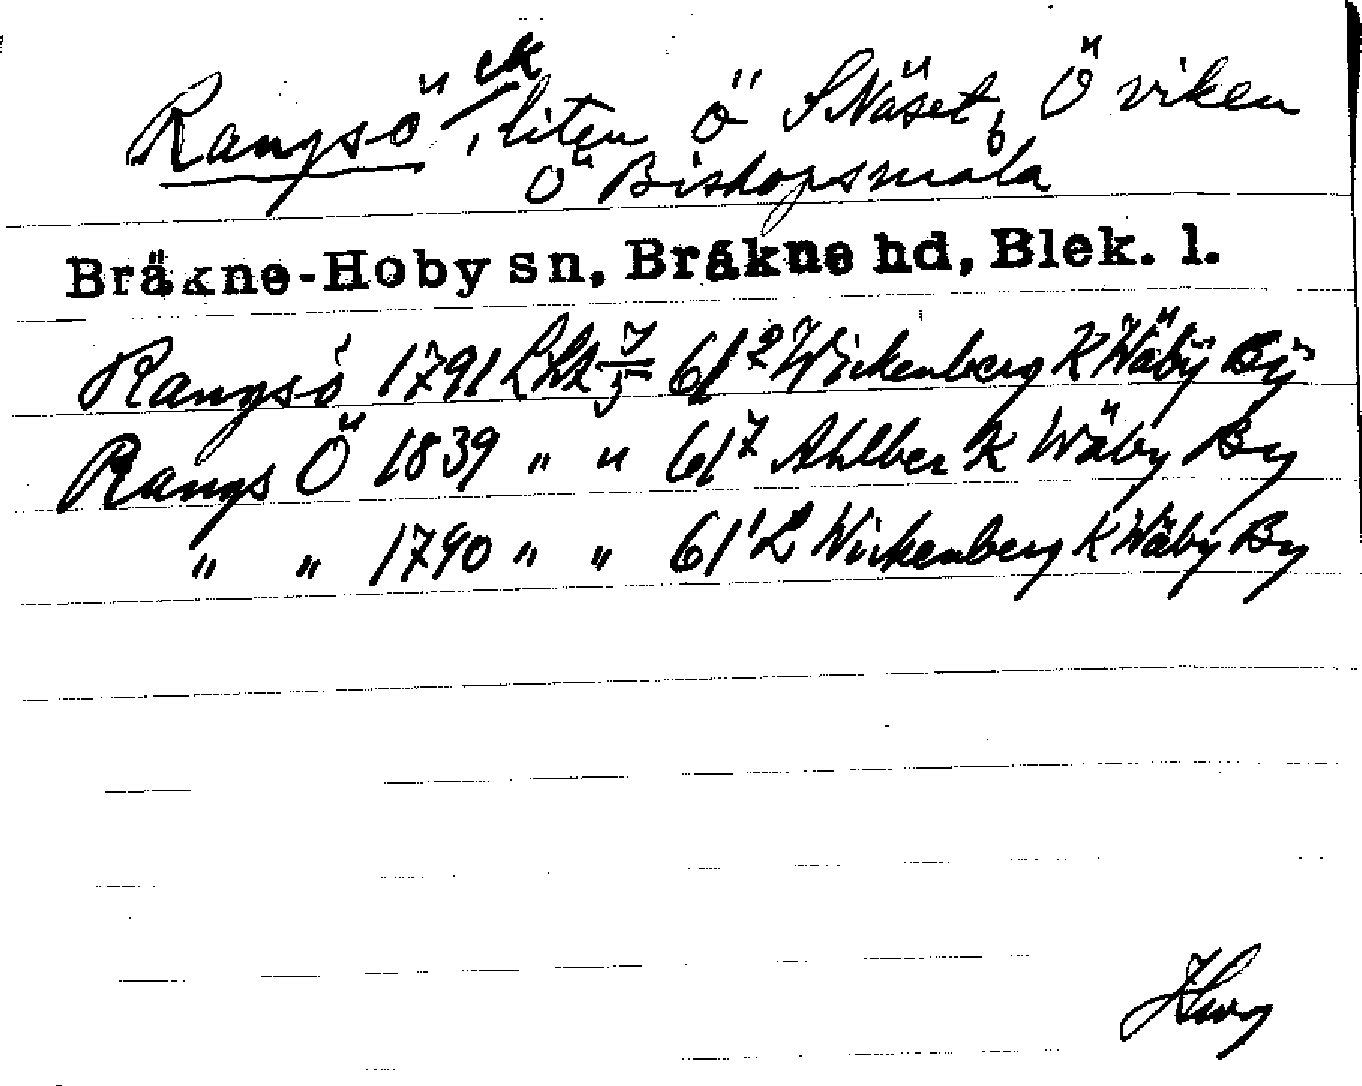 Rangsö ek, liten ö S Näset, Ö viken
Ö Bishopsmåla
Bräkne-Hoby sn, Bräkne hd, Blek. l.
Rangsö 1791 Lht 7/5 61² Wickenberg K Wäby By
Rangs Ö 1839 " " 61⁷ Ahlber K Wäby By
" " 1790 " " 61¹ Wickenberg K Wäby By